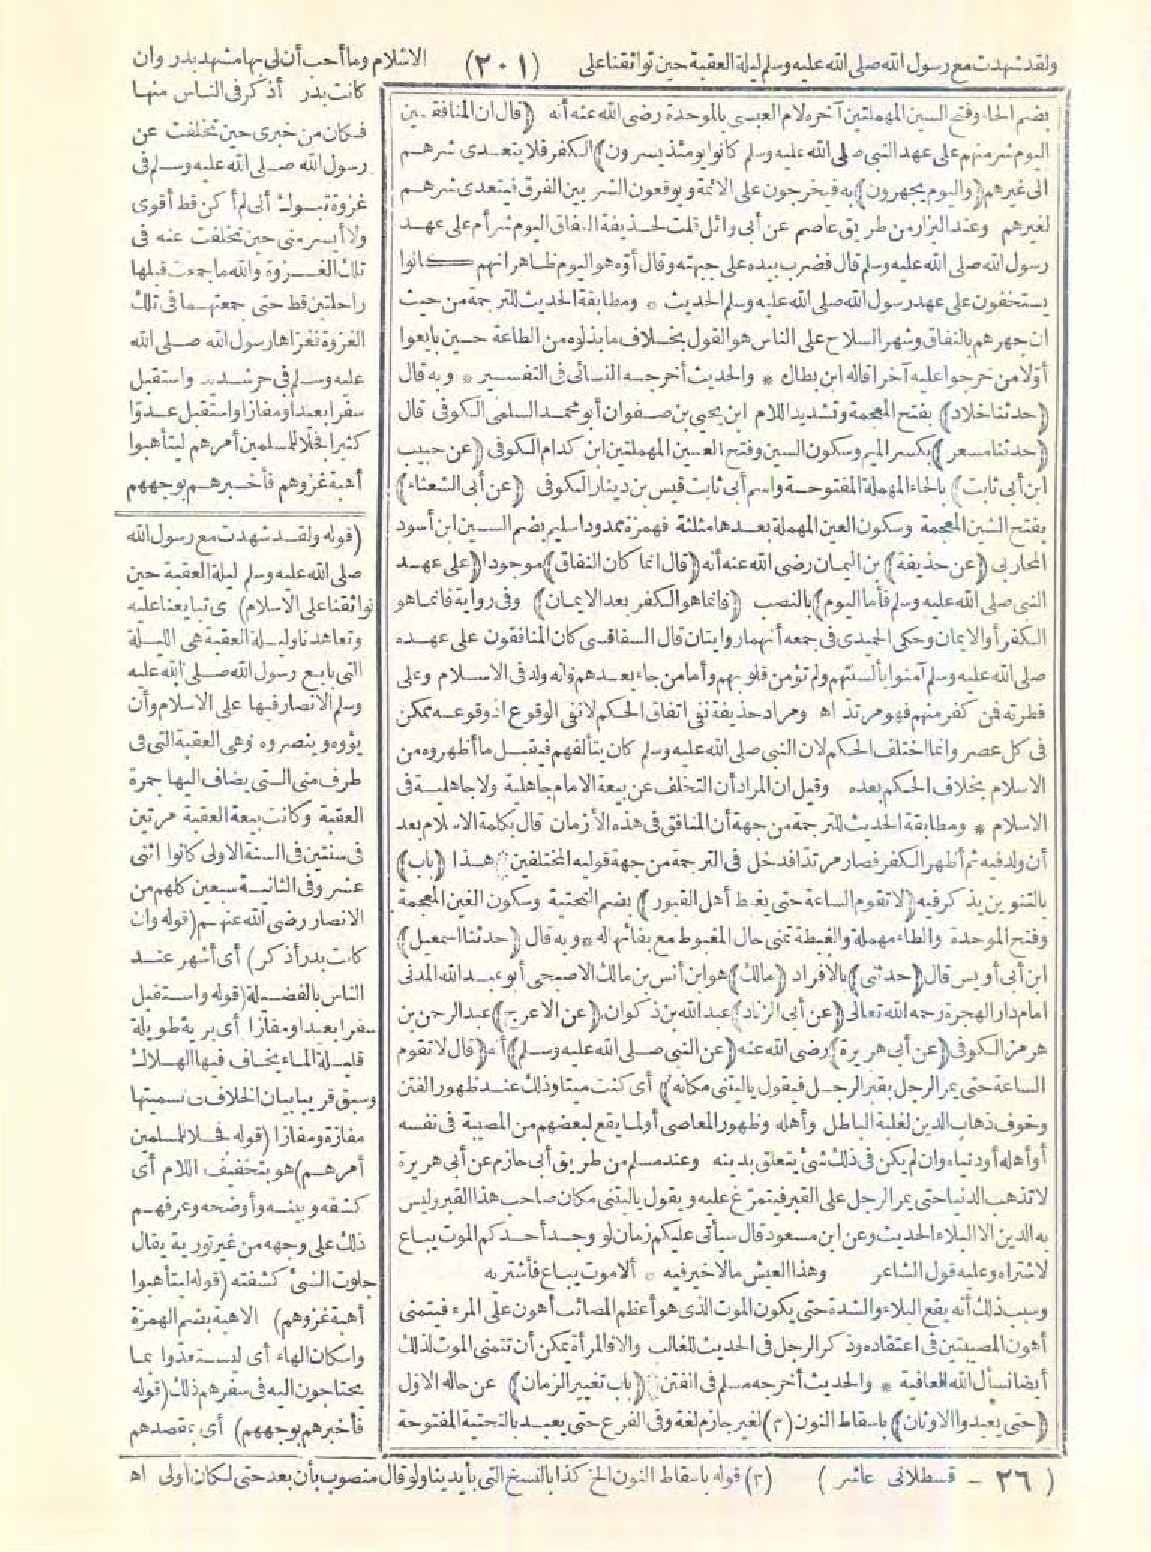 ولقد شهدت مع رسول الله صلى الله عليه وسلم ليلة العقبة حين تواثقنا على (٢٠١) الاسلام وما أحب أن لى بها مشهد بدر وان
بضم الحاء وفتح السين المهملتين آخره لام العبسى بالموحدة رضى الله عنه أنه (قال ان المنافقين
اليوم شر منهم على عهد النبى صلى الله عليه وسلم كانوا يومئذ يسرون) الكفر فلا يتعدى شرهم
الى غيرهم (واليوم يجهرون) به فيخرجون على الائمة ويوقعون الشر بين الفرق فيتعدى شرهم
لغيرهم وعند البزار من طريق عاصم عن أبى وائل قلت لحذيفة النفاق اليوم شر أم على عهد
رسول الله صلى الله عليه وسلم قال فضرب بيده على جبهته وقال أوّه هو اليوم ظاهر انهم كانوا
يستخفون على عهد رسول الله صلى الله عليه وسلم الحديث * ومطابقة الحديث للترجمة من حيث
ان جهرهم بالنفاق وشهر السلاح على الناس هو القول بخلاف ما بذلوه من الطاعة حين بايعوا
أوّلا من خرجوا عليه آخرا قاله ابن بطال * والحديث أخرجه النسائى فى التفسير * وبه قال
(حدثنا خلاد) بفتح المعجمة وتشديد اللام ابن يحيى بن صفوان أبو محمد السلمى الكوفى قال
(حدثنا مسعر) بكسر الميم وسكون السين وفتح العين المهملتين ابن كدام الكوفى (عن حبيب
ابن أبى ثابت) بالحاء المهملة المفتوحة واسم أبى ثابت قيس بن دينار الكوفى (عن أبى الشعثاء)
بفتح الشين المعجمة وسكون العين المهملة بعدها مثلثة فهمزة ممدودا سليم بضم السين ابن أسود
المحاربى (عن حذيفة) بن اليمان رضى الله عنه أنه (قال انما كان النفاق) موجودا (على عهد
النبى صلى الله عليه وسلم فأما اليوم) بالنصب (فانما هو الكفر بعد الايمان) وفى رواية فانما هو
الكفر أو الايمان وحكى الحميدى فى جمعه أنهما روايتان قال السفاقسى كان المنافقون على عهده
صلى الله عليه وسلم آمنوا بألسنتهم ولم تؤمن قلوبهم وأما من جاء بعدهم فانه ولد فى الاسلام وعلى
فطرته فمن كفر منهم فهو مرتد اه ومراد حذيفة نفى اتفاق الحكم لا نفى الوقوع اذ وقوعه ممكن
فى كل عصر وانما اختلف الحكم لان النبى صلى الله عليه وسلم كان يتألفهم فيقبل ما أظهروه من
الاسلام بخلاف الحكم بعده وقيل ان المراد أن التخلف عن بيعة الامام جاهلية ولا جاهلية فى
الاسلام * ومطابقة الحديث للترجمة من جهة أن المنافق فى هذه الأزمان قال بكلمة الاسلام بعد
أن ولد فيه ثم أظهر الكفر فصار مرتدا فدخل فى الترجمة من جهة قوليه المختلفين هذا (باب)
بالتنوين يذكر فيه (لا تقوم الساعة حتى يغبط أهل القبور) بضم التحتية وسكون الغين المعجمة
وفتح الموحدة والطاء مهملة والغبطة تمنى حال المغبوط مع بقائها له * وبه قال (حدثنا اسمعيل)
ابن أبى أويس قال (حدثنى) بالافراد (مالك) هو ابن أنس بن مالك الاصبحى أبو عبد الله المدنى
امام دار الهجرة رحمه الله تعالى (عن أبى الزناد) عبد الله بن ذكوان (عن الاعرج) عبد الرحمن بن
هرمز الكوفى (عن أبى هريرة) رضى الله عنه (عن النبى صلى الله عليه وسلم) أنه (قال لا تقوم
الساعة حتى يمر الرجل بقبر الرجل فيقول ياليتنى مكانه) أى كنت ميتا وذلك عند ظهور الفتن
وخوف ذهاب الدين لغلبة الباطل وأهله وظهور المعاصى أو لما يقع لبعضهم من المصيبة فى نفسه
أو أهله أو دنياه وان لم يكن فى ذلك شئ يتعلق بدينه وعند مسلم من طريق أبى حازم عن أبى هريرة
لا تذهب الدنيا حتى يمر الرجل على القبر فيتمرّغ عليه ويقول ياليتنى مكان صاحب هذا القبر وليس
به الدين الا البلاء الحديث وعن ابن مسعود قال سيأتى عليكم زمان لو وجد أحدكم الموت يباع
لاشتراه وعليه قول الشاعر وهذا العيش ما لا خير فيه * ألا موت يباع فأشتريه
وسبب ذلك أنه يقع البلاء والشدة حتى يكون الموت الذى هو أعظم المصائب أهون على المرء فيتمنى
أهون المصيبتين فى اعتقاده وذكر الرجل فى الحديث للغالب والا فالمرأة يمكن أن تتمنى الموت لذلك
أيضا نسأل الله العافية * والحديث أخرجه مسلم فى الفتن (باب تغيير الزمان) عن حاله الاول
(حتى يعبدوا الاوثان) باسقاط النون (٣) لغير جازم لغة وفى الفرع حتى يعبد بالتحتية المفتوحة
كانت بدر أذكر فى الناس منها
فكان من خبرى حين تخلفت عن
رسول الله صلى الله عليه وسلم فى
غزوة تبوك أنى لم أكن قط أقوى
ولا أيسر منى حين تخلفت عنه فى
تلك الغزوة والله ما جمعت قبلها
راحلتين قط حتى جمعتهما فى تلك
الغزوة فغزاها رسول الله صلى الله
عليه وسلم فى حر شديد واستقبل
سفرا بعيدا ومفازا واستقبل عدوّا
كثيرا فجلا للمسلمين أمرهم ليتأهبوا
أهبة غزوهم فأخبرهم بوجههم
(قوله ولقد شهدت مع رسول الله
صلى الله عليه وسلم ليلة العقبة حين
تواثقنا على الاسلام) أى تبايعنا عليه
وتعاهدنا وليلة العقبة هى الليلة
التى بايع رسول الله صلى الله عليه
وسلم الانصار فيها على الاسلام وأن
يؤوه وينصروه وهى العقبة التى فى
طرف منى التى يضاف اليها جمرة
العقبة وكانت بيعة العقبة مرتين
فى سنتين فى السنة الاولى كانوا اثنى
عشر وفى الثانية سبعين كلهم من
الانصار رضى الله عنهم (قوله وان
كانت بدر أذكر) أى أشهر عند
الناس بالفضيلة (قوله واستقبل
سفرا بعيدا ومفازا) أى برية طويلة
قليلة الماء يخاف فيها الهلاك
وسبق قريبا بيان الخلاف فى تسميتها
مفازة ومفازا (قوله فجلا للمسلمين
أمرهم) هو بتخفيف اللام أى
كشفه وبينه وأوضحه وعرفهم
ذلك على وجهه من غير تورية يقال
جلوت الشئ كشفته (قوله ليتأهبوا
أهبة غزوهم) الاهبة بضم الهمزة
واسكان الهاء أى ليستعدّوا بما
يحتاجون اليه فى سفرهم ذلك (قوله
فأخبرهم بوجههم) أى بمقصدهم
(٢٦ - قسطلانى عاشر) (٣) قوله باسقاط النون الخ كذا بالنسخ التى بأيدينا ولو قال منصوب بأن بعد حتى لكان أولى اه